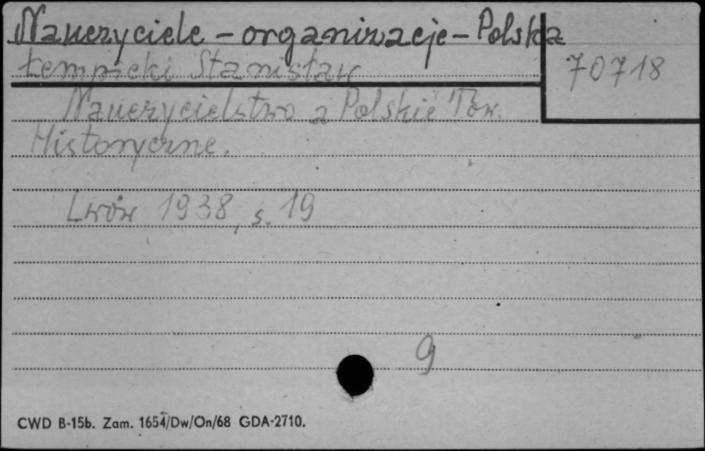 Nauczyciele - organizacje - Polska
Łempicki Stanisław
70718
Nauczycielstwo a Polskie Tow.
Historyczne.
Lwów 1938, s. 19
9
CWD B-15b. Zam. 1654/Dw/On/68 GDA-2710.